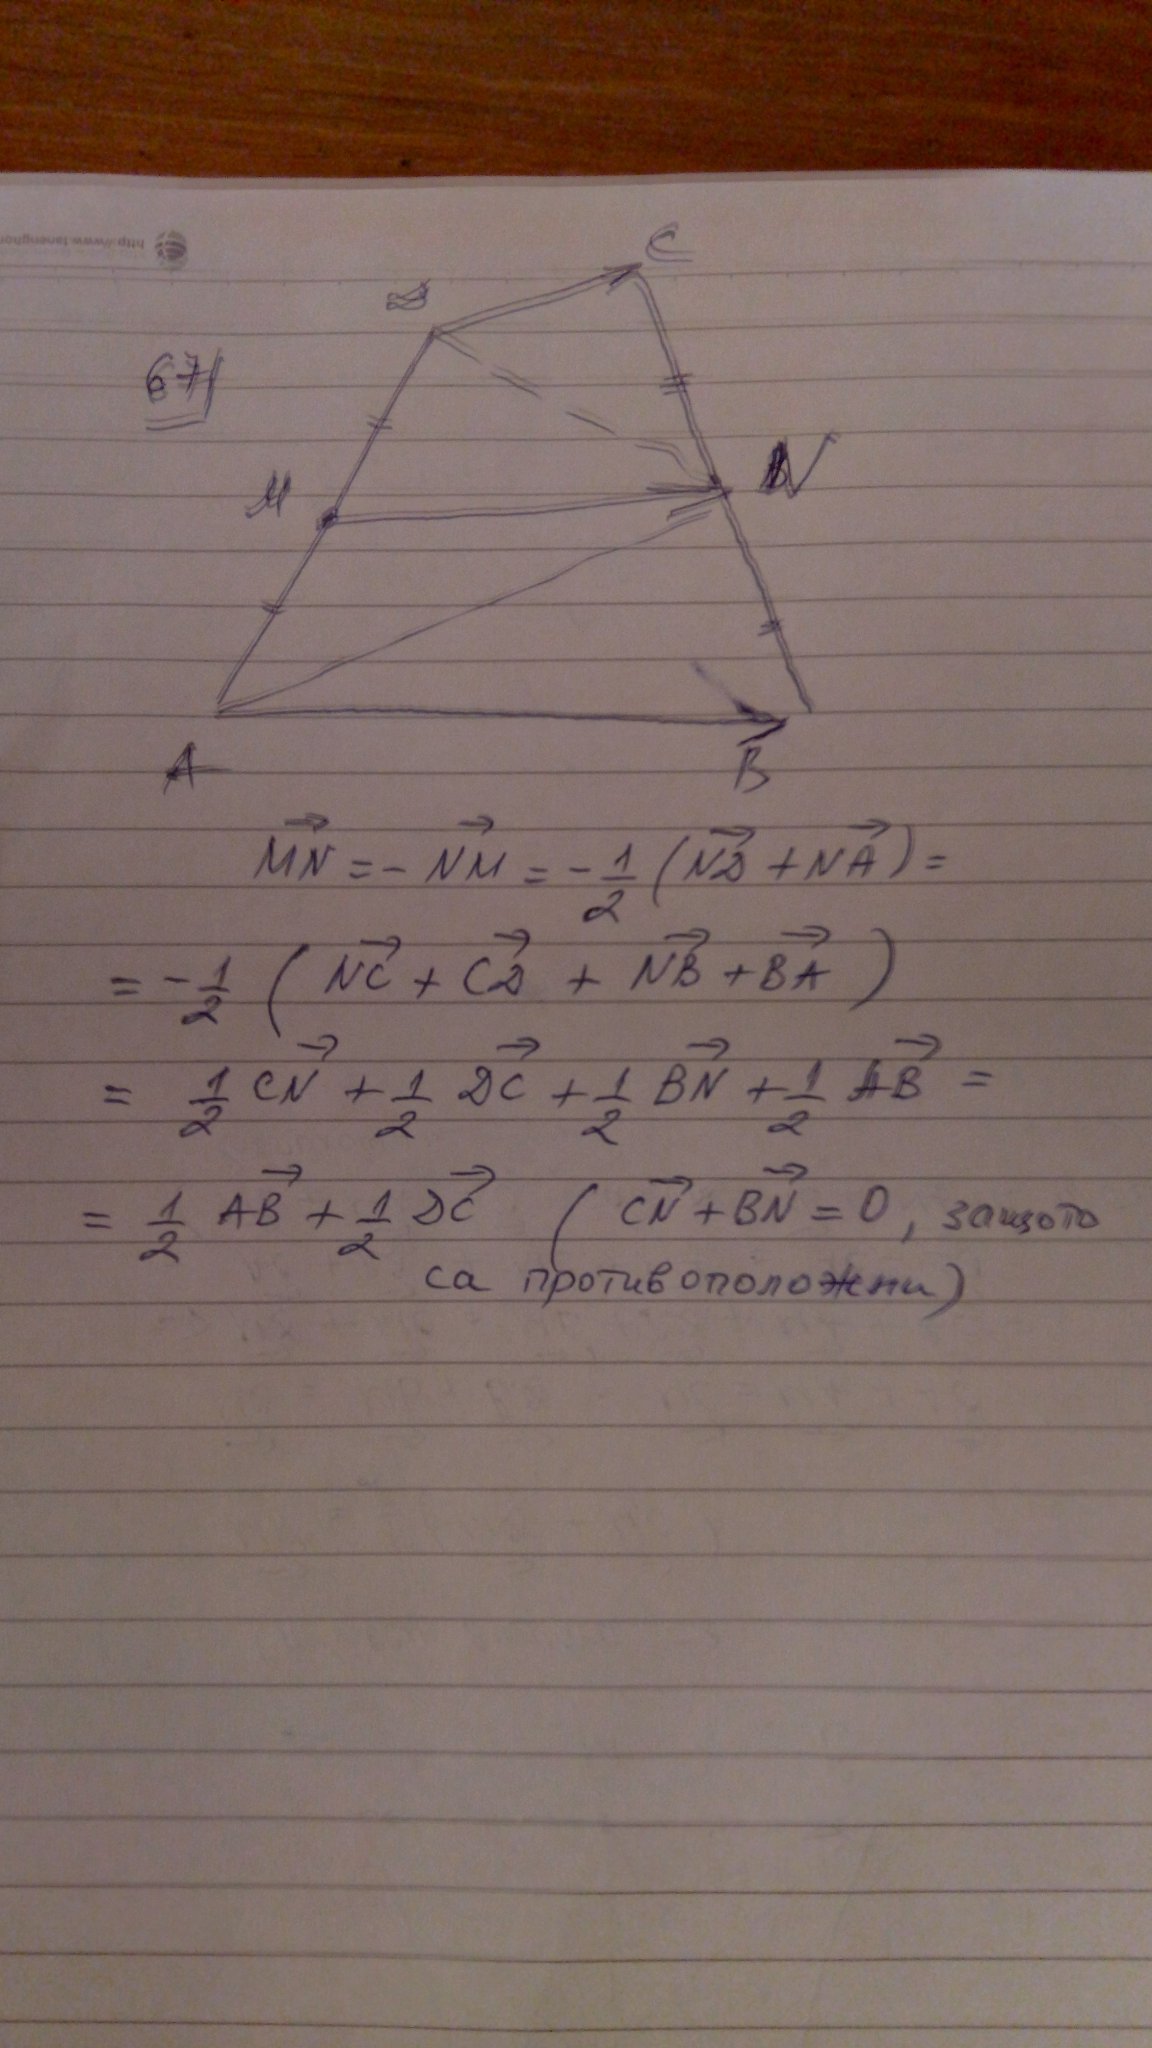 C
D
67)
M
N
A
B
$\overrightarrow{MN} = -\overrightarrow{NM} = -\frac{1}{2}(\overrightarrow{ND} + \overrightarrow{NA}) =$
$= -\frac{1}{2}(\overrightarrow{NC} + \overrightarrow{CD} + \overrightarrow{NB} + \overrightarrow{BA})$
$= \frac{1}{2}\overrightarrow{CN} + \frac{1}{2}\overrightarrow{DC} + \frac{1}{2}\overrightarrow{BN} + \frac{1}{2}\overrightarrow{AB} =$
$= \frac{1}{2}\overrightarrow{AB} + \frac{1}{2}\overrightarrow{DC}$ ($\overrightarrow{CN} + \overrightarrow{BN} = 0$, защото
са противоположни)